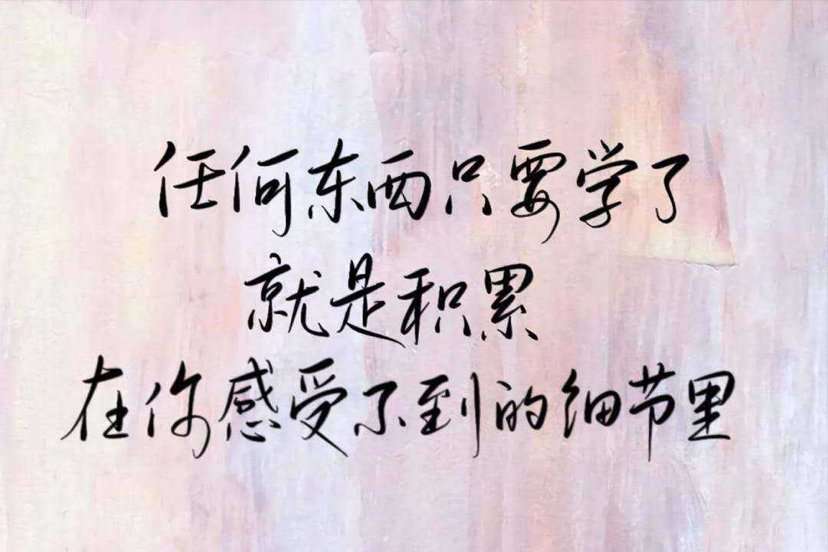 任何东西只要学了
就是积累
在你感受不到的细节里